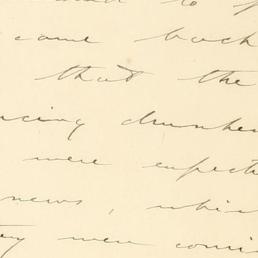 to
came back
that the
cing drunken
were expect
news, whic
ey were comi